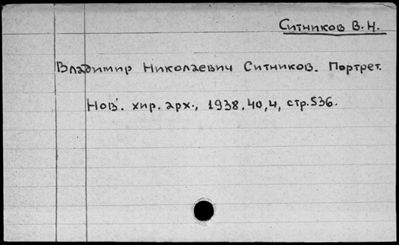 Ситников В.Н.
Владимир Николаевич Ситников. Портрет.
Нов. хир. арх., 1938, 40, 4, стр. 536.